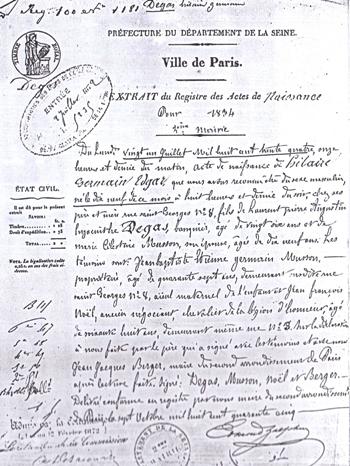 Reg. 100 et n° 1181 Degas hilaire germain
PRÉFECTURE DU DÉPARTEMENT DE LA SEINE.
Ville de Paris.
EXTRAIT du Registre des Actes de Naissance
Pour 1834
2ème Mairie
ENTRÉE
Du Lundi vingt un Juillet Mil huit cent trente quatre, onze
heures et demie du matin, acte de naissance de hilaire
Germain Edgar que nous avons reconnu être du sexe masculin,
né le dix neuf de ce mois à huit heures et demie du soir, chez ses
père et mère rue saint Georges N° 8, fils de Laurent pierre Augustin
hyacinthe Degas, banquier, âgé de vingt six ans et de
marie Célestine Musson, son épouse, âgée de dix neuf ans. Les
témoins sont Jean baptiste Etienne germain Musson,
propriétaire, âgé de quarante sept ans, demeurant susdite rue
saint Georges N° 8, aïeul maternel de l'enfant et Jean françois
Noël, ancien négociant, chevalier de la légion d'honneur, âgé
de soixante huit ans, demeurant même rue N° 3. Sur la déclaration
à nous faite par le père qui a signé avec les témoins et avec nous
Jean Jacques Berger, maire du second arrondissement de Paris
après lecture faite, signé: Degas, Musson, Noël et Berger.
Délivré conforme au registre par nous maire du second arrondissement
de Paris, le sept Octobre mil huit cent quarante cinq
ÉTAT CIVIL.
Il est dû pour le présent extrait
SAVOIR:
Timbre
Droit d'expédition
TOTAL
Admis par la Commission